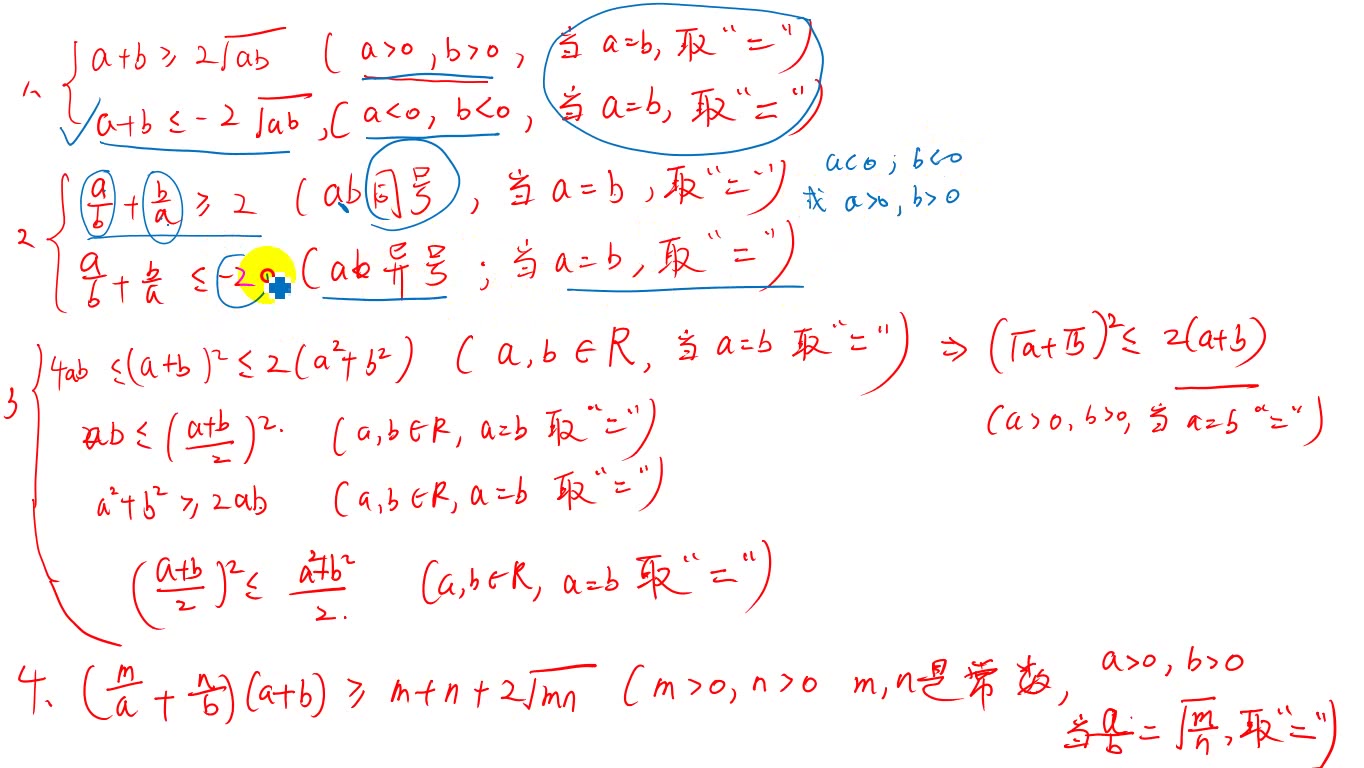 1、 a+b ≥ 2√ab ( a>0 , b>0 , 当 a=b, 取“=”)
a+b ≤ -2√ab ,( a<0, b<0 , 当 a=b, 取“=”)
2 a/b + b/a ≥ 2 ( ab 同号 , 当 a=b , 取“=”)
a<0 ; b<0
或 a>0, b>0
a/b + b/a ≤ -2 ( ab 异号 ; 当 a=b, 取“=”)
3 4ab ≤(a+b)² ≤ 2(a²+b²) ( a,b∈R, 当 a=b 取“=”) ⇒ (√a+√b)² ≤ 2(a+b)
(a>0, b>0, 当 a=b “=”)
ab ≤ ((a+b)/2)². (a,b∈R, a=b 取“=”)
a²+b² ≥ 2ab (a,b∈R, a=b 取“=”)
((a+b)/2)² ≤ (a²+b²)/2. (a,b∈R, a=b 取“=”)
4、 (m/a + n/b)(a+b) ≥ m+n+2√mn (m>0, n>0 m,n是常数, a>0, b>0
当 a/b = √(m/n), 取“=”)